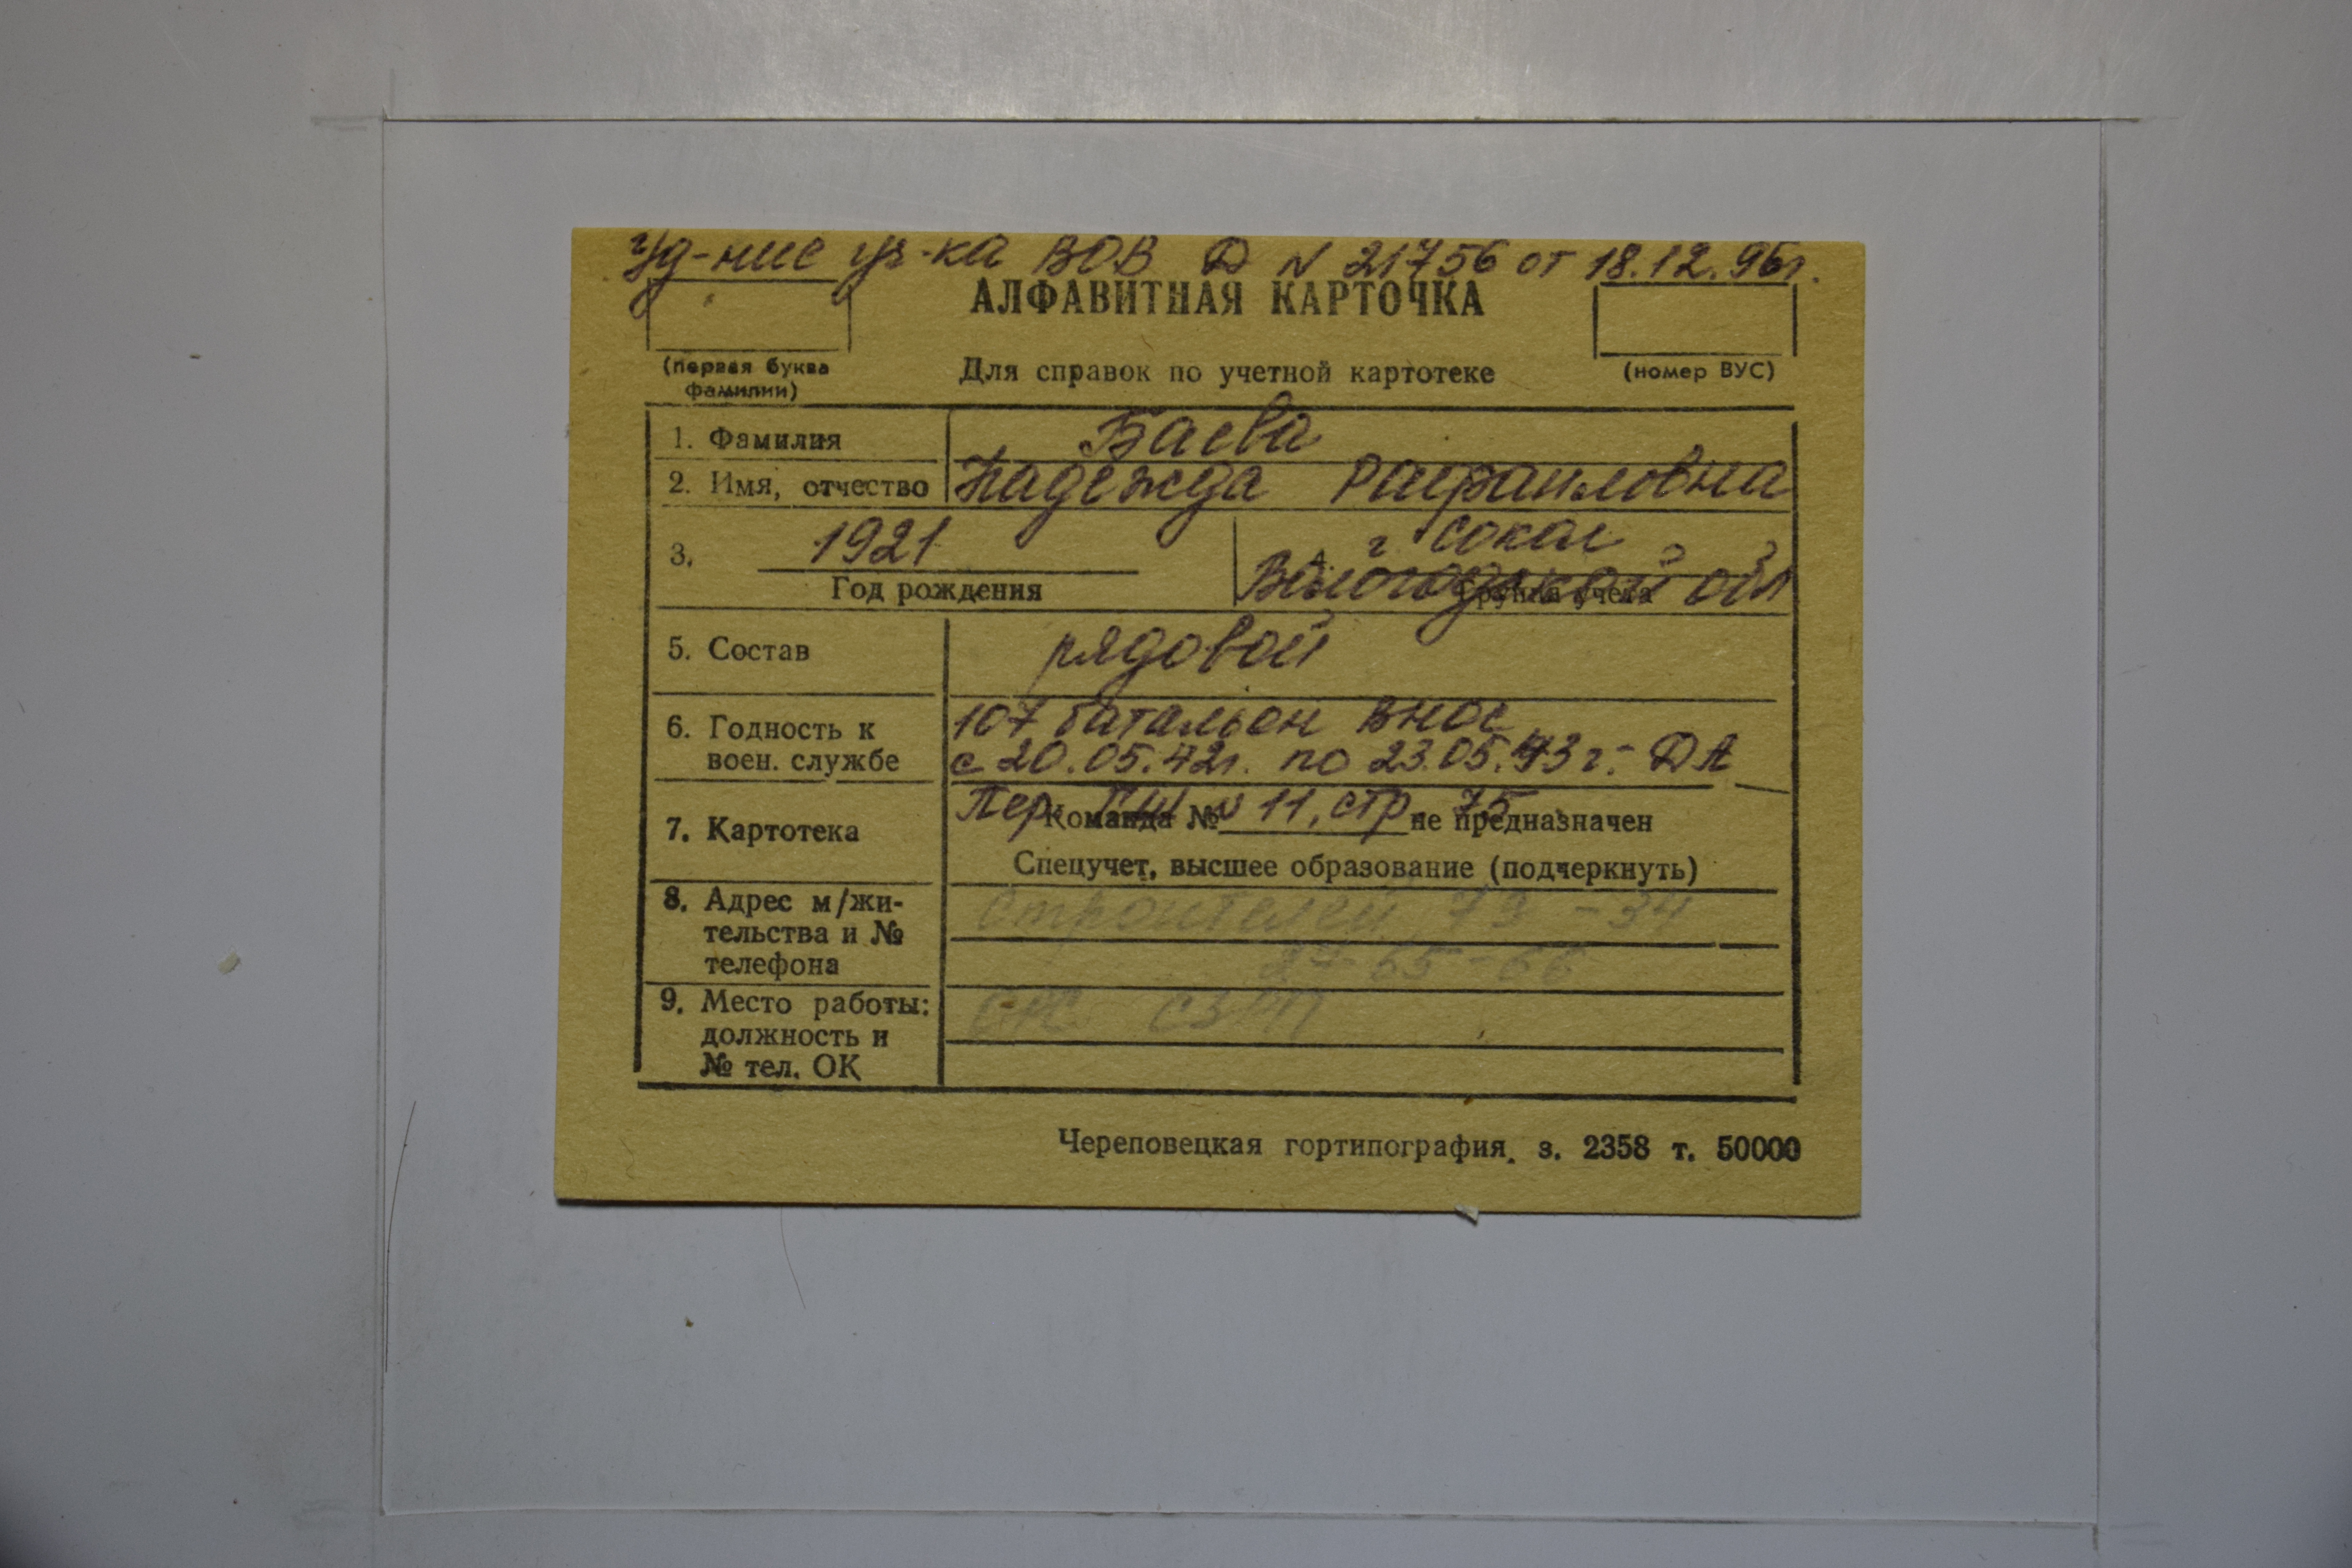 Уд-ние уч-ка ВОВ Д N 21756 от 18.12.96г.
АЛФАВИТНАЯ КАРТОЧКА
(первая буква фамилии)
Для справок по учетной картотеке
(номер ВУС)
1. Фамилия Баева
2. Имя, отчество Надежда Рафаиловна
3. 1921 г Сокол
Год рождения Вологодской обл
5. Состав рядовой
6. Годность к воен. службе 107 батальон ВНОС
с 20.05.42г. по 23.05.43г. - ДА
7. Картотека Пер. N 11, стр. 75
Команда № не предназначен
Спецучет, высшее образование (подчеркнуть)
8. Адрес м/жи-
тельства и №
телефона
Строителей 79 - 34
27-65-66
9. Место работы:
должность и
№ тел. ОК
Череповецкая гортипография. з. 2358 т. 50000